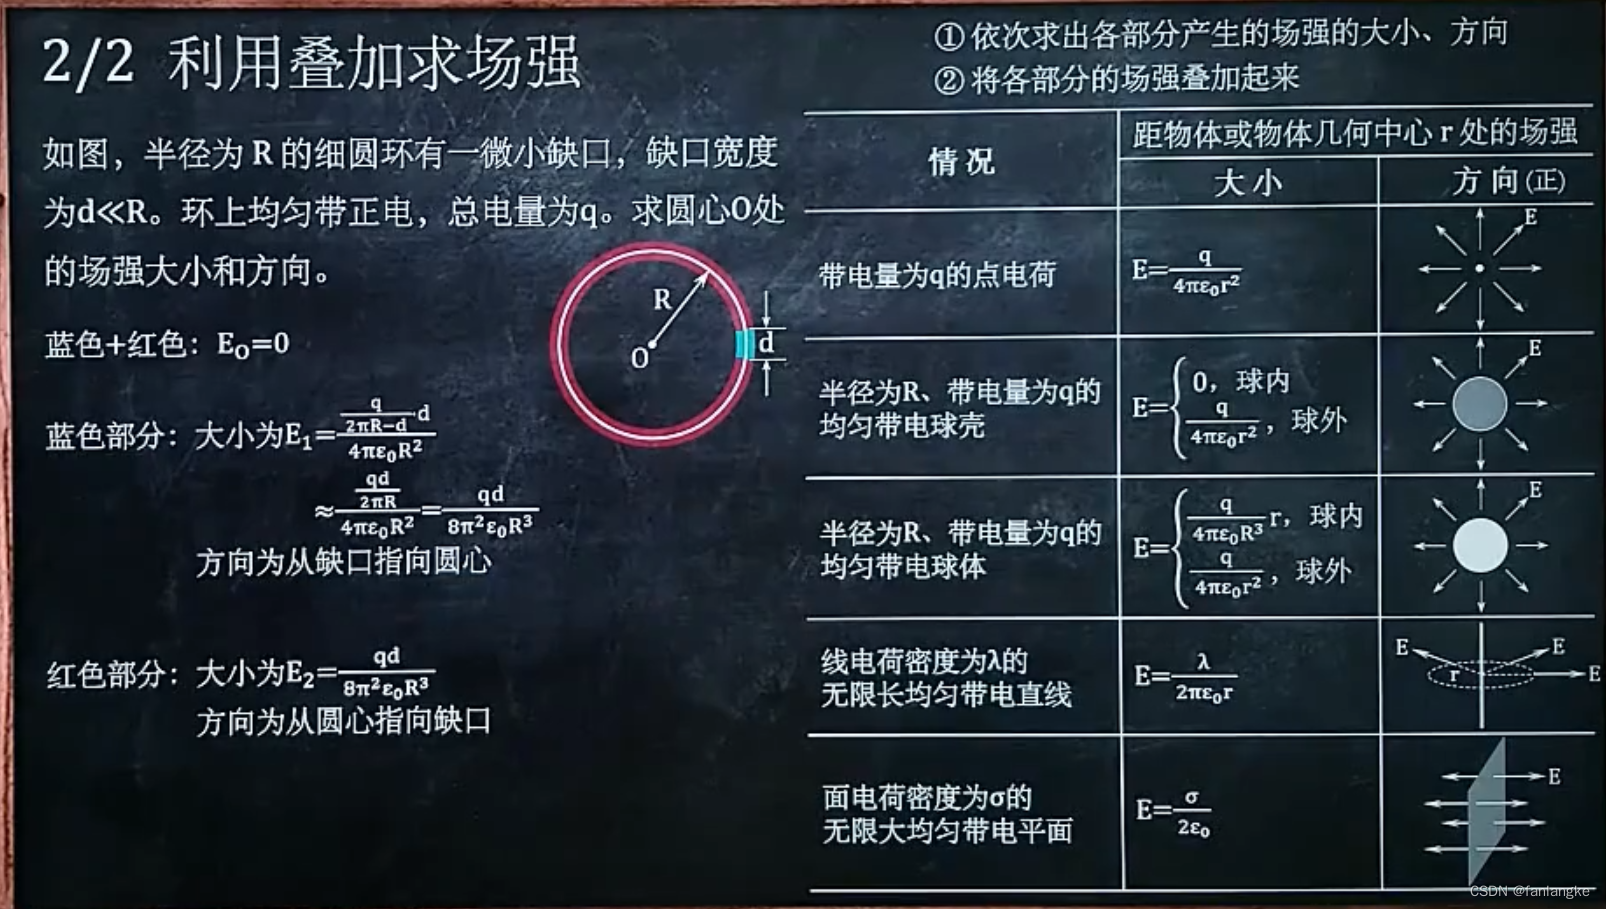 2/2 利用叠加求场强
① 依次求出各部分产生的场强的大小、方向
② 将各部分的场强叠加起来
如图，半径为 R 的细圆环有一微小缺口，缺口宽度
为d≪R。环上均匀带正电，总电量为q。求圆心O处
的场强大小和方向。
R
O
d
蓝色+红色：E₀=0
蓝色部分：大小为E₁=\frac{\frac{q}{2πR-d}·d}{4πε₀R²}
≈\frac{\frac{qd}{2πR}}{4πε₀R²}=\frac{qd}{8π²ε₀R³}
方向为从缺口指向圆心
红色部分：大小为E₂=\frac{qd}{8π²ε₀R³}
方向为从圆心指向缺口
情况
距物体或物体几何中心 r 处的场强
大小
方向(正)
带电量为q的点电荷
E=\frac{q}{4πε₀r²}
E
半径为R、带电量为q的
均匀带电球壳
E={0，球内
\frac{q}{4πε₀r²}，球外
E
半径为R、带电量为q的
均匀带电球体
E={\frac{q}{4πε₀R³}r，球内
\frac{q}{4πε₀r²}，球外
E
线电荷密度为λ的
无限长均匀带电直线
E=\frac{λ}{2πε₀r}
E
E
r
E
面电荷密度为σ的
无限大均匀带电平面
E=\frac{σ}{2ε₀}
E
CSDN @fanlangke